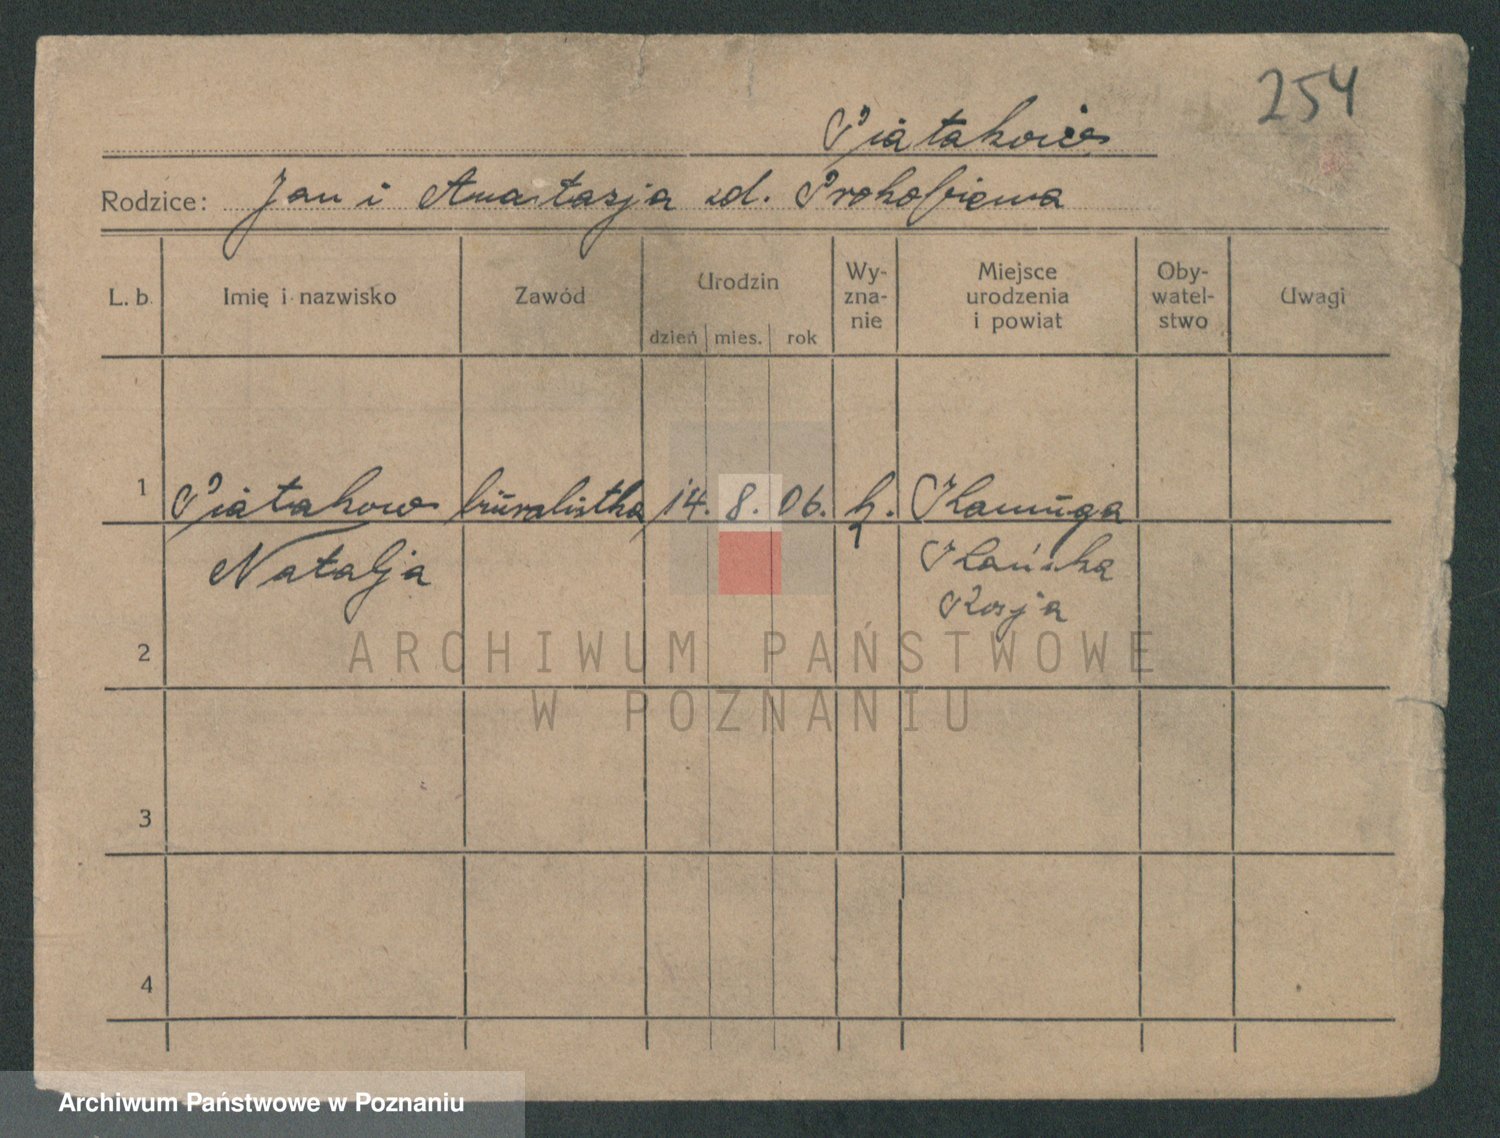 254
Piatakow
Rodzice: Jan i Anastazja zd. Prokofiewa
L. b. Imię i nazwisko Zawód Urodzin dzień mies. rok Wy-zna-nie Miejsce urodzenia i powiat Oby-watel-stwo Uwagi
1 Piatakow biuralistka 14. 8. 06.
Natalja
Rosja
2
3
4
ARCHIWUM PAŃSTWOWE
W POZNANIU
Archiwum Państwowe w Poznaniu